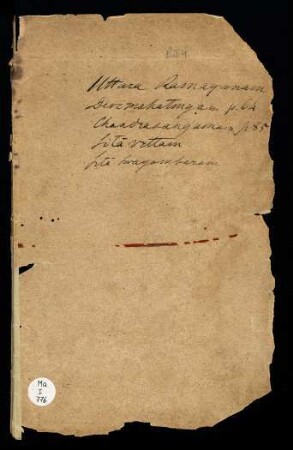 RJ4
Uttara Ramayanam
Devimahatmyam p. 64
Chandrasangamam p. 85
Sitā vrttam
Sitā Swayambaram
Ma
I
776